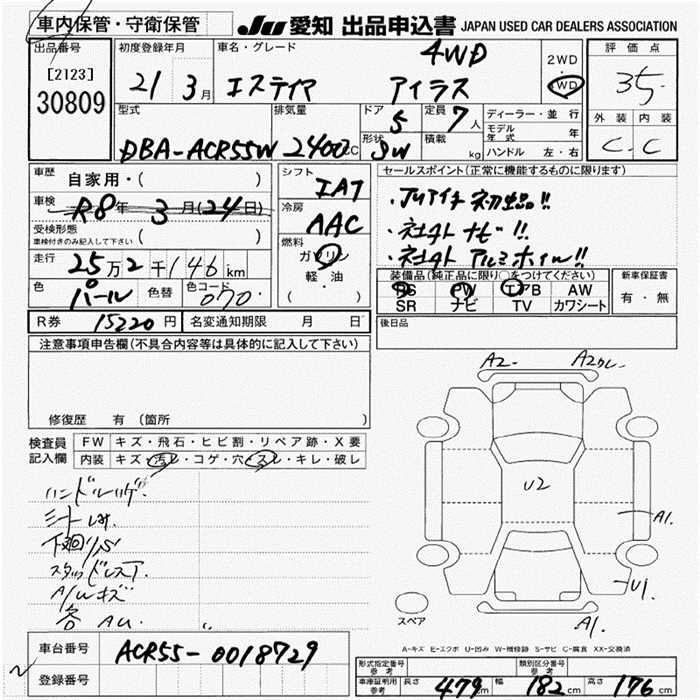 車内保管・守衛保管
JU 愛知 出品申込書 JAPAN USED CAR DEALERS ASSOCIATION
出品番号
[2123]
30809
初度登録年月
21 3月
車名・グレード
4WD
エスティマ アイラス
2WD
・
4WD
評価点
3.5
外装 内装
C C
型式
DBA-ACR55W
排気量
2400cc
ドア
5
形状
SW
定員 7人
積載 kg
ディーラー・並行
モデル年式 年
ハンドル 左・右
車歴 自家用・( )
車検 R8年 3月(24日)
受検形態
車検付きのみ記入して下さい ( )
走行 25万2千146km
色 パール 色替 色コード 070
シフト
IAT
冷房
AAC
燃料
ガソリン
軽・油
( )
セールスポイント(正常に機能するものに限ります)
・JUアイチ初出品!!
・社外ナビ!!
・社外アルミホイル!!
装備品(純正品に限り○をつけてください)
PS PW エアB AW
SR ナビ TV カワシート
新車保証書
有・無
R券 15220円 名変通知期限 月 日
後日品
注意事項申告欄(不具合内容等は具体的に記入して下さい)
修復歴 有 (箇所 )
検査員記入欄
FW キズ・飛石・ヒビ割・リペア跡・X要
内装 キズ・汚レ・コゲ・穴・スレ・キレ・破レ
シート
下廻りS
スタッドレスT.
A/Wキズ
各AU.
A2
U2
A1.
U1
A1.
スペア
A-キズ E-エクボ U-凹み W-補修跡 S-サビ C-腐食 XX-交換済
車台番号 ACR55-0018729
登録番号
形式指定番号参考 類別区分番号
車庫証明用参考 長さ 479cm 幅 182cm 高さ 176cm